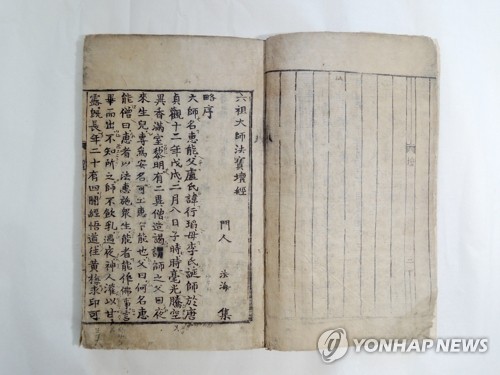 六祖大師法寶壇經
門人 法海 集
略序
大師名惠能父盧氏諱行瑫母李氏誕師於唐
貞觀十二年戊戌二月八日子時時毫光騰空
異香滿室黎明有二異僧造謁謂師之父曰夜
來生兒專爲安名可上惠下能也父曰何名惠
能僧曰惠者以法惠施衆生能者能作佛事言
畢而出不知所之師不飲乳過夜神人灌以甘
露旣長年二十有四聞經悟道往黃梅求印可
YONHAP NEWS